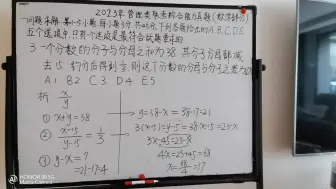 2023年管理类联考综合能力真题(数学部分)
一.问题求解:第1-15小题,每小题3分,共45分,下列各题给出的A,B,C,D,E
五个选项中,只有一个选项是最符合试题要求的
3.一个分数的分子与分母之和为38,其分子分母都减
去15,约分后得到1/3,则这个分数的分母与分子之差为
A1 B2 C3 D4 E5
析 x/y
① x+y=38 → y=38-x=38-17=21
② x-15/y-15=1/3 → 3(x-15)=y-15=38-x-15=23-x
3x-45=23-x
③ y-x=? 4x=23+45=68
=21-17=4 x=68/4=17
HONOR